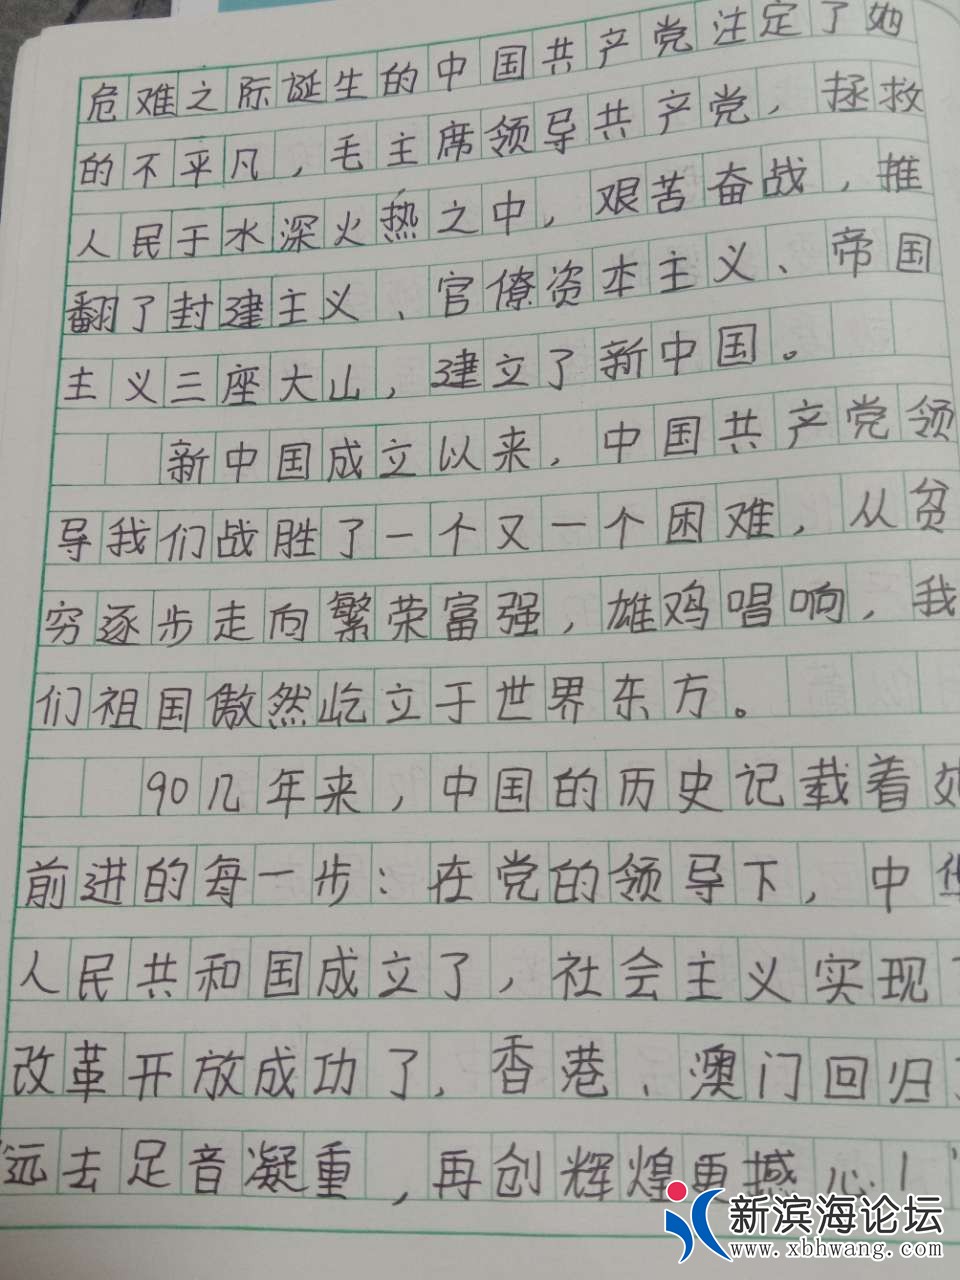 危难之际诞生的中国共产党注定了她
的不平凡，毛主席领导共产党，拯救
人民于水深火热之中，艰苦奋战，推
翻了封建主义、官僚资本主义、帝国
主义三座大山，建立了新中国。
新中国成立以来，中国共产党领
导我们战胜了一个又一个困难，从贫
穷逐步走向繁荣富强，雄鸡唱响，我
们祖国傲然屹立于世界东方。
90几年来，中国的历史记载着她
前进的每一步：在党的领导下，中华
人民共和国成立了，社会主义实现
改革开放成功了，香港、澳门回归
远去足音凝重，再创辉煌更撼心
新滨海论坛
www.xbhwang.com